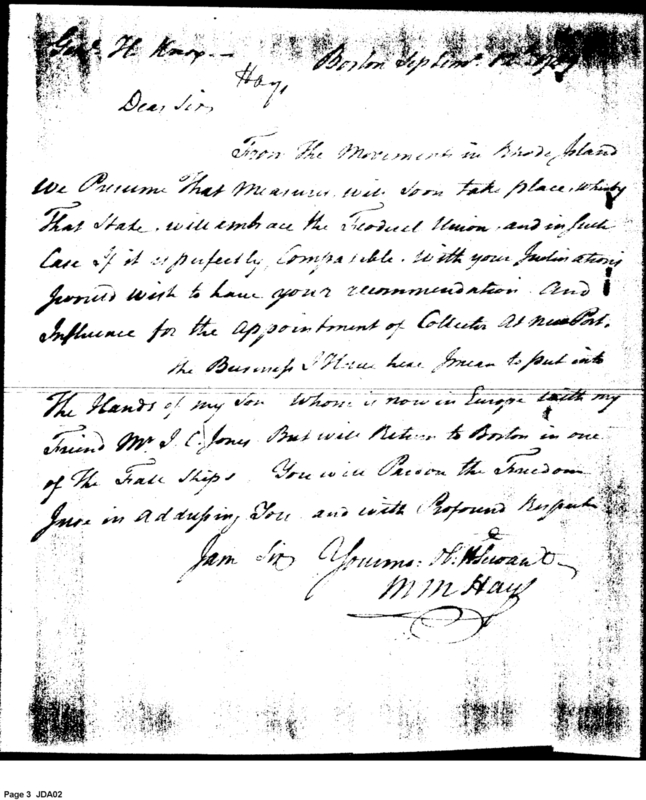 Genl. H Knox
Boston Septemr. 12th 1789
Hays
Dear Sir,
From The Movements in Rhode Island
We Presume That Measures will soon take place, whereby
That State, will embrace the Foederel Union, and in such
Case If it is perfectly Compatible with your Inclinations
I would wish to have your recommendation And
Influence for the appointment of Collector At New Port.
The Business I Have here I mean to put into
The Hands of my Son Whom is now in Europe with my
Friend Mr. J. C. Jones But will Return to Boston in one
of The Fall Ships. You will Pardon the Freedom
I use in addressing You and with Profound Respect
I am Sir Your mo: H. Servant
M M Hays
Page 3 JDA02